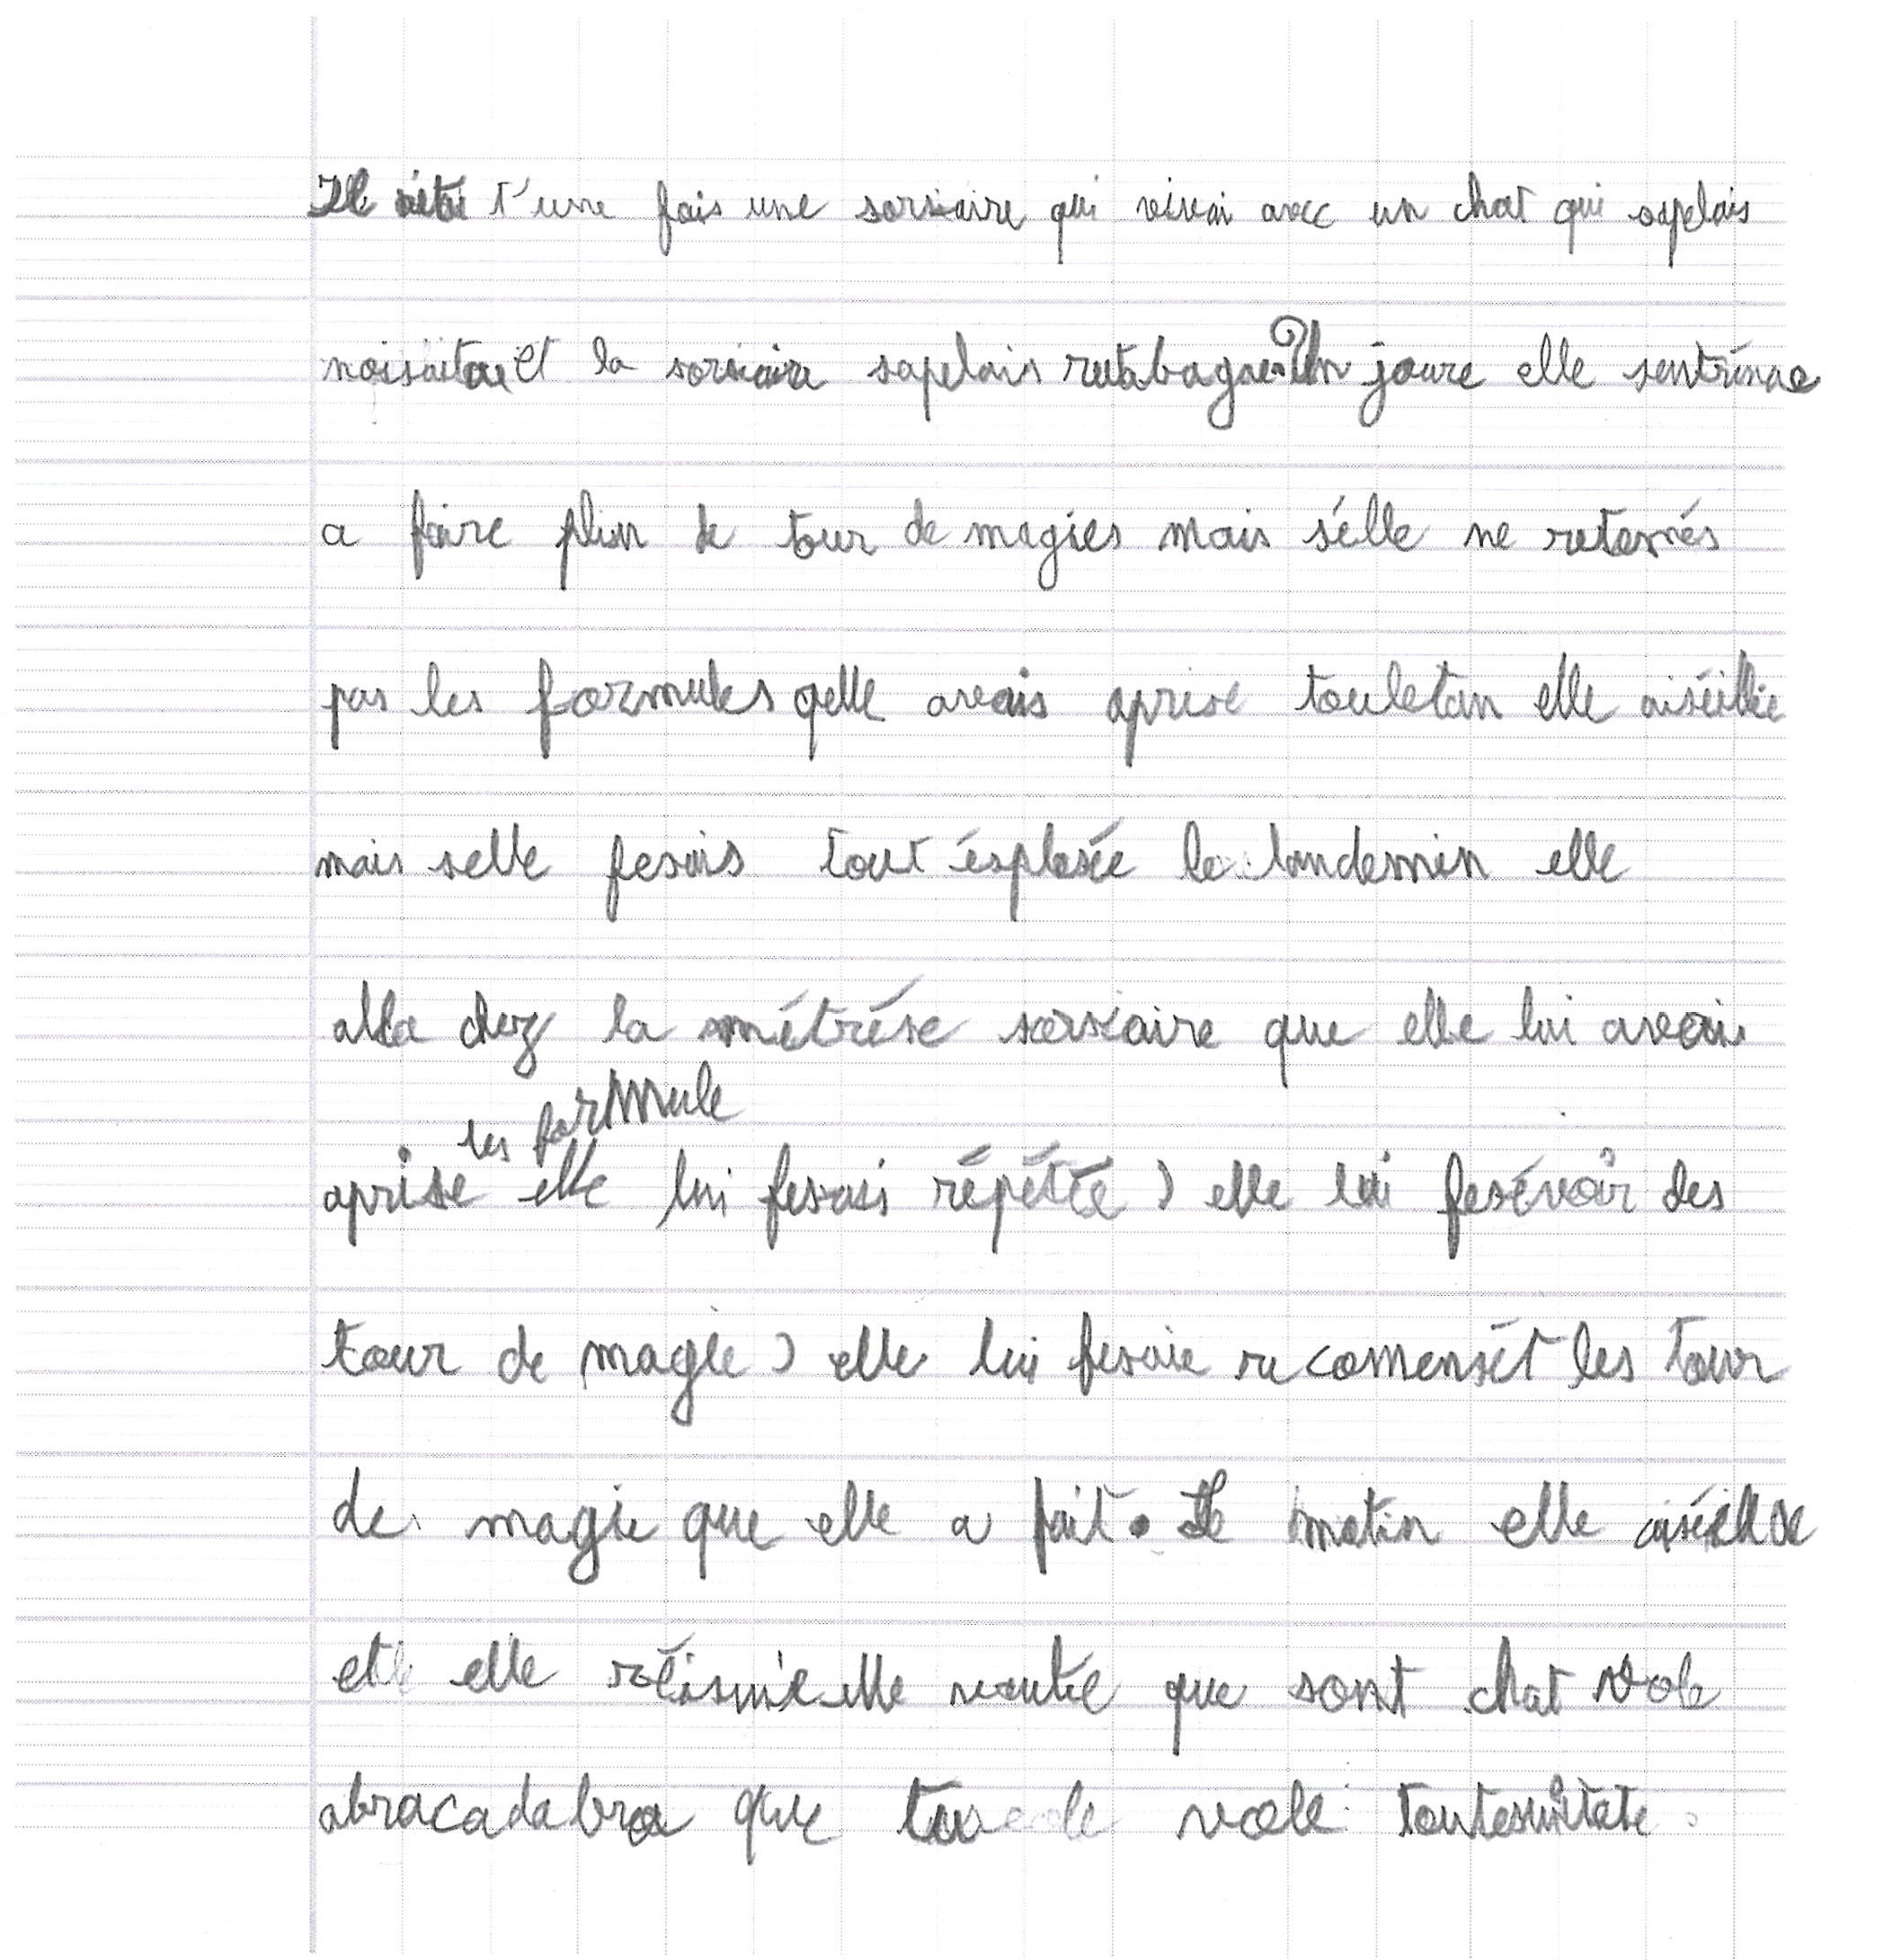 Il étai t'une fois une sorsiaire qui vivai avec un chat qui sapelais
noisaitte et la sorsiaire sapelais rutabagae. Un joure elle sentrénae
a faire plin de tour de magies mais s'élle ne retenés
pas les formules qelle avais aprise touletan elle aiséillie
mais selle fesais tout ésplosée le landemin elle
alla chez la métrése sorsiaire que elle lui avais
les formule
aprise elle lui fesais répétée ) elle lui fesévoir des
tour de magie ) elle lui fesaie recomensét les tour
de magie que elle a fait. Le matin elle aiséille
et elle réisuié elle veutie que sont chat vole
abracadabra que tu vole toutesuitete.